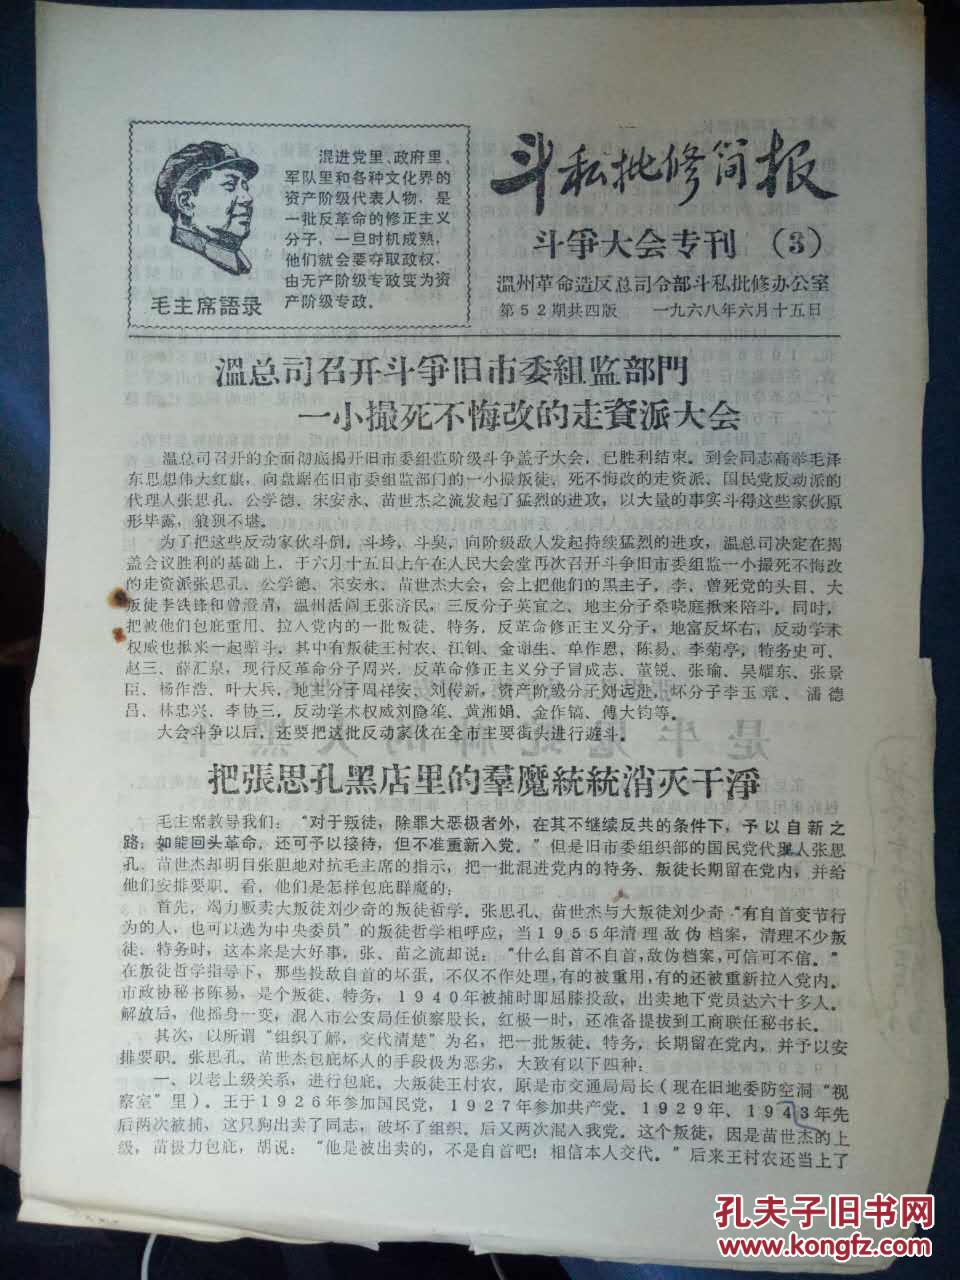 混进党里、政府里、
军队里和各种文化界的
资产阶级代表人物，是
一批反革命的修正主义
分子，一旦时机成熟，
他们就会要夺取政权，
由无产阶级专政变为资
产阶级专政。
毛主席語录
斗私批修简报
斗爭大会专刊（3）
溫州革命造反总司令部斗私批修办公室
第52期共四版　一九六八年六月十五日
溫总司召开斗爭旧市委組监部門
一小撮死不悔改的走資派大会
温总司召开的全面彻底揭开旧市委组监阶级斗争盖子大会，已胜利结束。到会同志高举毛泽
东思想伟大红旗，向盘踞在旧市委组监部门的一小撮叛徒、死不悔改的走资派、国民党反动派的
代理人张思孔、公学德、宋安永、苗世杰之流发起了猛烈的进攻，以大量的事实斗得这些家伙原
形毕露，狼狈不堪。
为了把这些反动家伙斗倒，斗垮，斗臭，向阶级敌人发起持续猛烈的进攻，温总司决定在揭
盖会议胜利的基础上，于六月十五日上午在人民大会堂再次召开斗争旧市委组监一小撮死不悔改
的走资派张思孔、公学德、宋安永、苗世杰大会，会上把他们的黑主子，李、曾死党的头目、大
叛徒李铁锋和曾澄清，温州活阎王张济民，三反分子英宜之、地主分子桑晓庭揪来陪斗。同时，
把被他们包庇重用、拉入党内的一批叛徒、特务，反革命修正主义分子，地富反坏右，反动学术
权威也揪来一起陪斗。其中有叛徒王村农、江钊、金谢生、单作恩、陈易、李菊亭，特务史可、
赵三、薛汇泉，现行反革命分子周兴，反革命修正主义分子冒成志、董锐、张瑜、吴耀东、张景
臣、杨作浩、叶大兵，地主分子周祥安、刘传新，资产阶级分子刘远赴，坏分子李玉章、潘德
昌、林忠兴、李协三，反动学术权威刘隐笙、黄湘娟、金作镐、傅大钧等。
大会斗争以后，还要把这批反动家伙在全市主要街头进行遊斗。
把張思孔黑店里的羣魔統統消灭干淨
毛主席教导我们：“对于叛徒，除罪大恶极者外，在其不继续反共的条件下，予以自新之
路；如能回头革命，还可予以接待，但不准重新入党。”但是旧市委组织部的国民党代理人张思
孔、苗世杰却明目张胆地对抗毛主席的指示，把一批混进党内的特务、叛徒长期留在党内，并给
他们安排要职。看，他们是怎样包庇群魔的：
首先，竭力贩卖大叛徒刘少奇的叛徒哲学。张思孔、苗世杰与大叛徒刘少奇“有自首变节行
为的人，也可以选为中央委员”的叛徒哲学相呼应，当1955年清理敌伪档案，清理不少叛
徒、特务时，这本来是大好事，张、苗之流却说：“什么自首不自首，敌伪档案，可信可不信。”
在叛徒哲学指导下，那些投敌自首的坏蛋，不仅不作处理，有的被重用，有的还被重新拉人党内。
市政协秘书陈易，是个叛徒、特务，1940年被捕时即屈膝投敌，出卖地下党员达六十多人。
解放后，他摇身一变，混入市公安局任侦察股长，红极一时，还准备提拔到工商联任秘书长。
其次，以所谓“组织了解，交代清楚”为名，把一批叛徒、特务，长期留在党内，并予以安
排要职。张思孔、苗世杰包庇坏人的手段极为恶劣，大致有以下四种：
一、以老上级关系，进行包庇。大叛徒王村农，原是市交通局局长（现在旧地委防空洞“视
察室”里）。王于1926年参加国民党，1927年参加共产党。1929年、1943年先
后两次被捕，这只狗出卖了同志，破坏了组织。后又两次混入我党。这个叛徒，因是苗世杰的上
级，苗极力包庇，胡说：“他是被出卖的，不是自首吧！相信本人交代。”后来王村农还当上了
孔夫子旧书网
www.kongfz.com